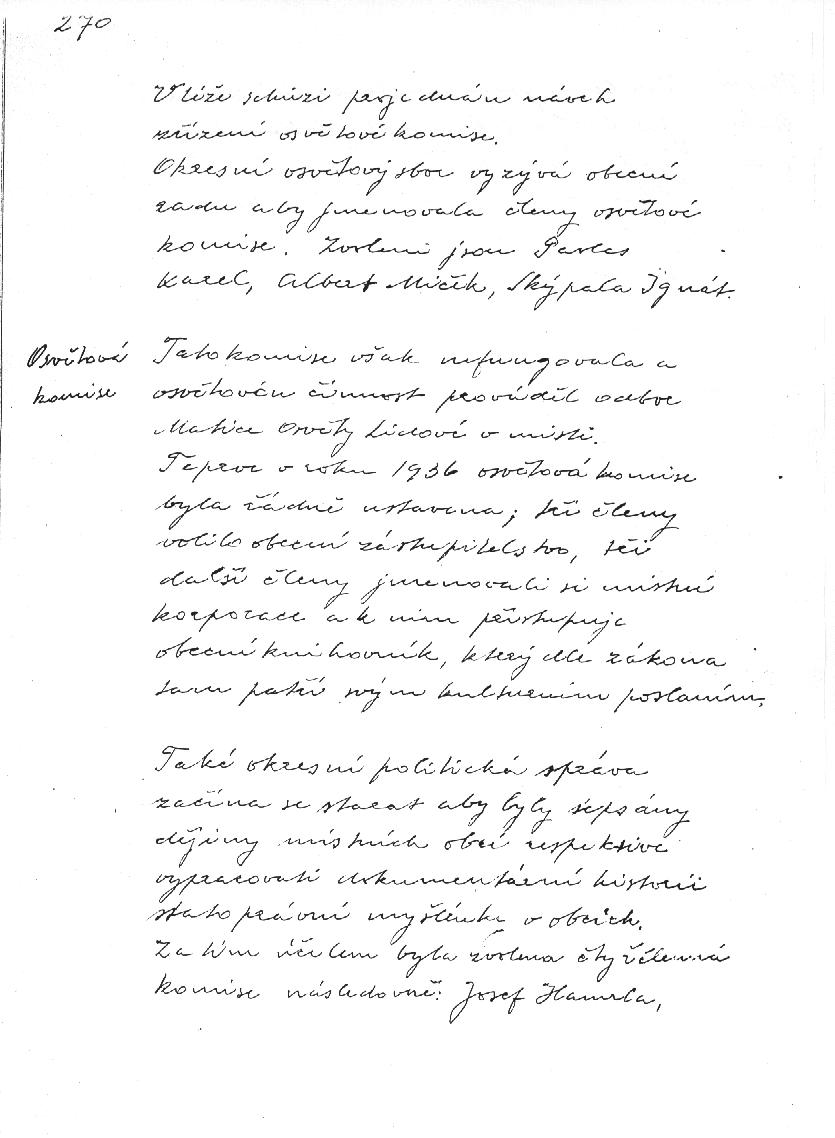 270
V téže schůzi projednán návrh
zřízení osvětové komise.
Okresní osvětový sbor vyzývá obecní
radu aby jmenovala členy osvětové
komise. Zvoleni jsou
Karel, Albert Mičík, Skýpala Ignát.
Osvětová
komise
Tato komise však nefungovala a
osvětovou činnost prováděl odbor
Matice Osvěty Lidové v místě.
Teprve v roku 1936 osvětová komise
byla řádně ustavena; tři členy
volilo obecní zástupitelstvo, tři
další členy jmenovali si místní
korporace a k nim přistupuje
obecní knihovník, který dle zákona
tam patří svým kulturním posláním.
Také okresní politická správa
začína se starat aby byly sepsány
dějiny místních obcí respektive
vypracovati dokumentární historii
státoprávní myšlénky v obcích.
Za tím účelem byla zvolena čtyřčlenná
komise následovně: Josef Hamrla,